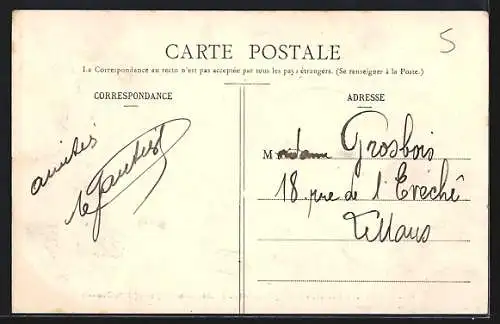 5
CARTE POSTALE
La Correspondance au recto n'est pas acceptée par tous les pays étrangers. (Se renseigner à la Poste.)
CORRESPONDANCE
amitiés
ADRESSE
Madame Grosbois
18 rue de l'Evêché
Le Mans